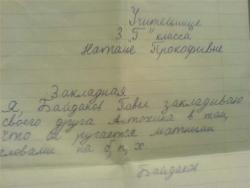 Учительнице
3 "Г" класса
Наташе Прокофивне
Закладная
Я, Байдаков Павел закладываю
своего друга Антохина в том,
что он ругается матными
словами на б, п, х
Байдаков